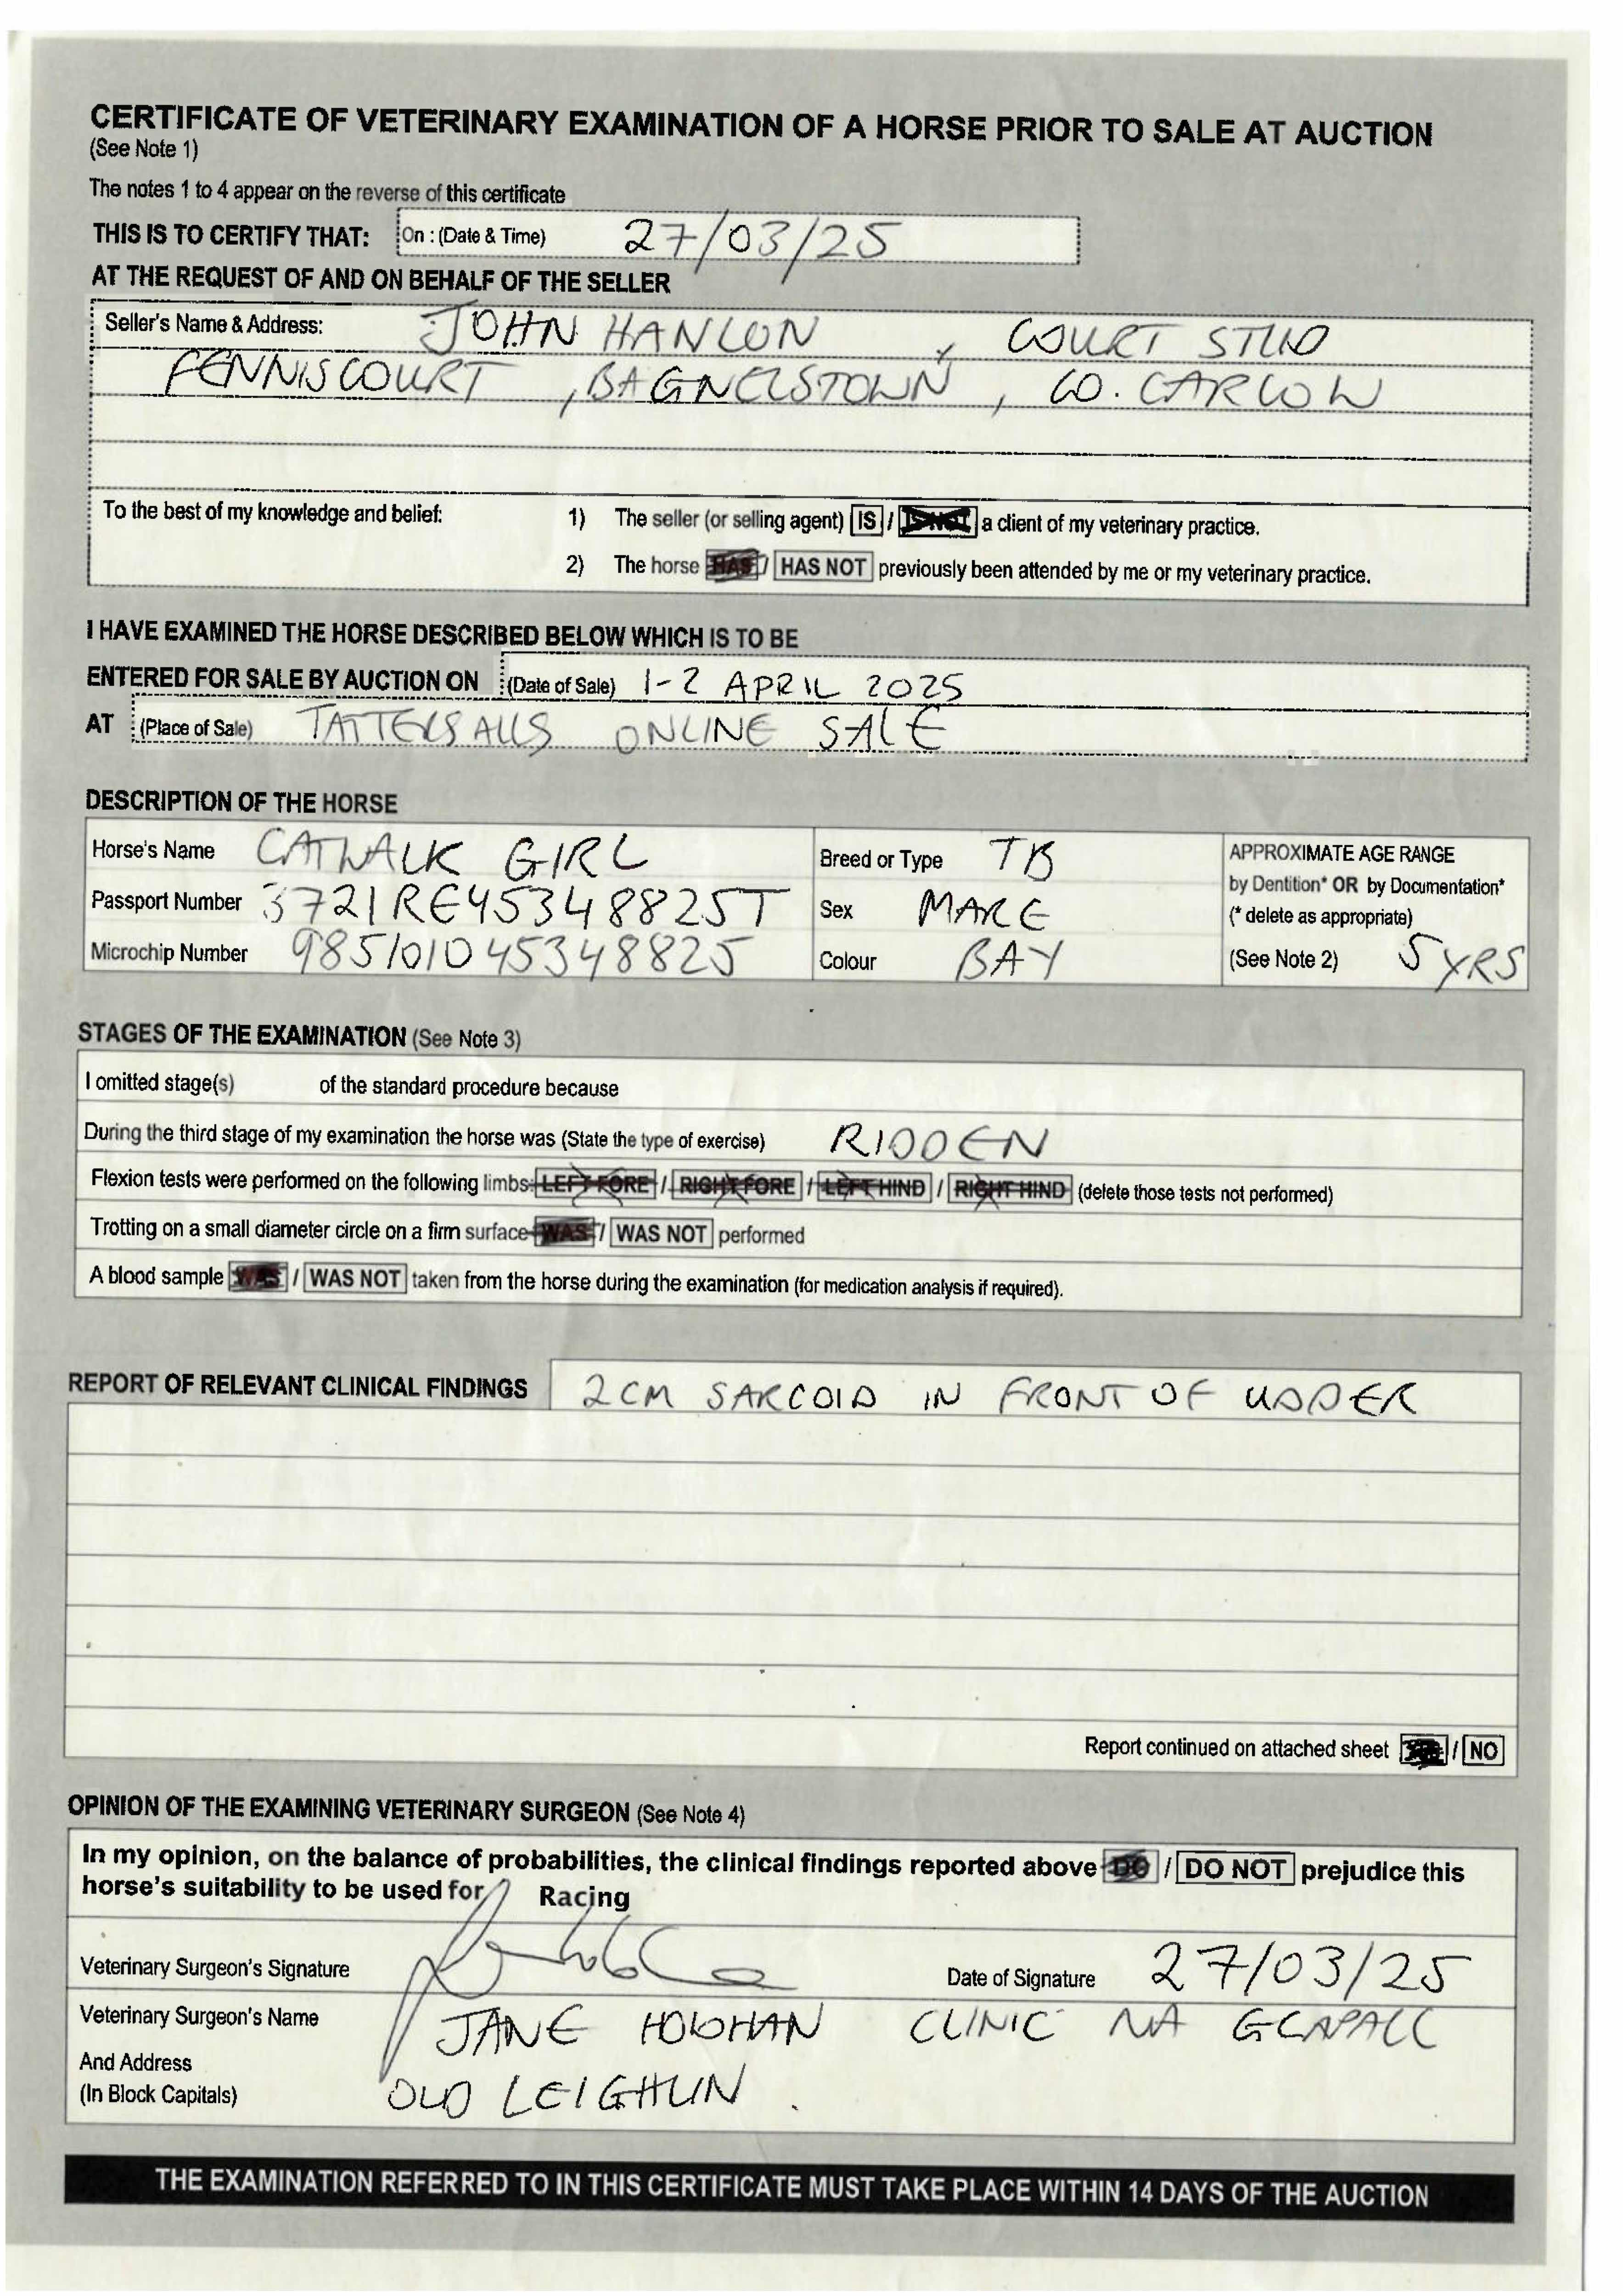 CERTIFICATE OF VETERINARY EXAMINATION OF A HORSE PRIOR TO SALE AT AUCTION
(See Note 1)
The notes 1 to 4 appear on the reverse of this certificate
THIS IS TO CERTIFY THAT: On : (Date & Time) 27/03/25
AT THE REQUEST OF AND ON BEHALF OF THE SELLER
Seller's Name & Address: JOHN HANLON, COURT STUD
FENNISCOURT, BAGNELSTOWN, CO. CARLOW
To the best of my knowledge and belief: 1) The seller (or selling agent) IS / IS NOT a client of my veterinary practice.
2) The horse HAS / HAS NOT previously been attended by me or my veterinary practice.
I HAVE EXAMINED THE HORSE DESCRIBED BELOW WHICH IS TO BE
ENTERED FOR SALE BY AUCTION ON (Date of Sale) 1-2 APRIL 2025
AT (Place of Sale) TATTERSALLS ONLINE SALE
DESCRIPTION OF THE HORSE
Horse's Name CATWALK GIRL Breed or Type TB APPROXIMATE AGE RANGE
by Dentition* OR by Documentation*
Passport Number 372IRE45348825T Sex MARE (* delete as appropriate)
Microchip Number 985101045348825 Colour BAY (See Note 2) 5 YRS
STAGES OF THE EXAMINATION (See Note 3)
I omitted stage(s) of the standard procedure because
During the third stage of my examination the horse was (State the type of exercise) RIDDEN
Flexion tests were performed on the following limbs: LEFT FORE / RIGHT FORE / LEFT HIND / RIGHT HIND (delete those tests not performed)
Trotting on a small diameter circle on a firm surface WAS / WAS NOT performed
A blood sample WAS / WAS NOT taken from the horse during the examination (for medication analysis if required).
REPORT OF RELEVANT CLINICAL FINDINGS 2CM SARCOID IN FRONT OF UDDER
Report continued on attached sheet / NO
OPINION OF THE EXAMINING VETERINARY SURGEON (See Note 4)
In my opinion, on the balance of probabilities, the clinical findings reported above DO / DO NOT prejudice this
horse's suitability to be used for Racing
Veterinary Surgeon's Signature Date of Signature 27/03/25
Veterinary Surgeon's Name JANE HOLOHAN CLINIC NA GCAPALL
And Address
(In Block Capitals) OLD LEIGHLIN.
THE EXAMINATION REFERRED TO IN THIS CERTIFICATE MUST TAKE PLACE WITHIN 14 DAYS OF THE AUCTION